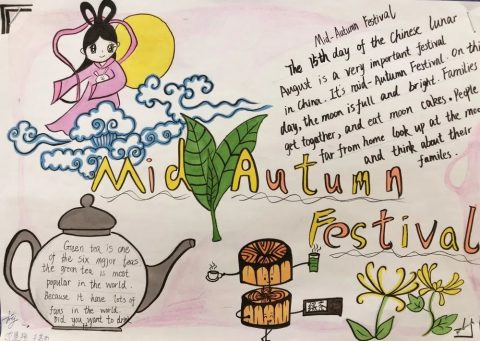 Mid-Autumn Festival
The 15th day of the Chinese lunar
August is a very important festival
in China. It's mid-Autumn Festival. On this
day, the moon is full and bright. Families
get together, and eat moon cakes. People
far from home look up at the moon
and think about their
familes.
Mid Autumn
Festival
Green tea is one
of the six major teas
the green tea is most
popular in the world.
Because it have lots of
fans in the world.
Did you want to drink